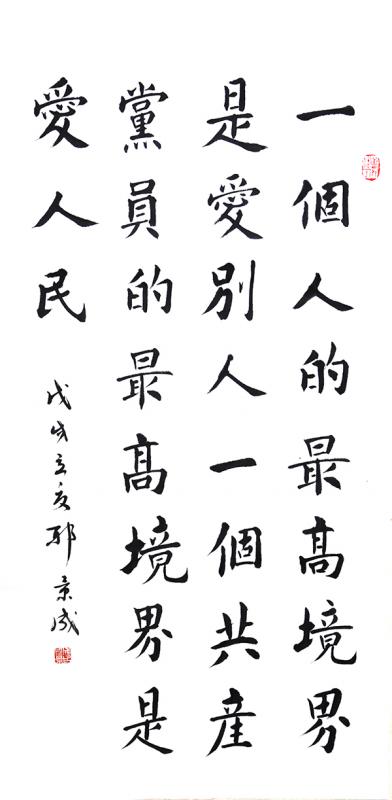 一個人的最高境界
是愛別人一個共産
黨員的最高境界是
愛人民
戊戌立夏耶景成